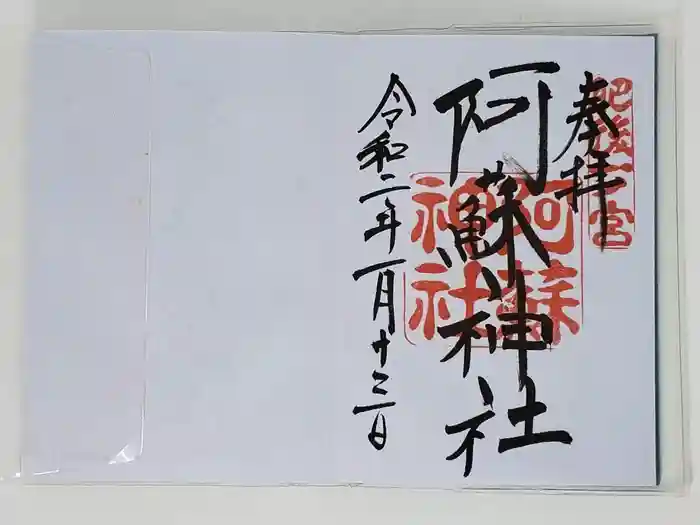 奉拝
肥後一宮
阿蘇神社
阿蘇神社
令和二年一月十三日